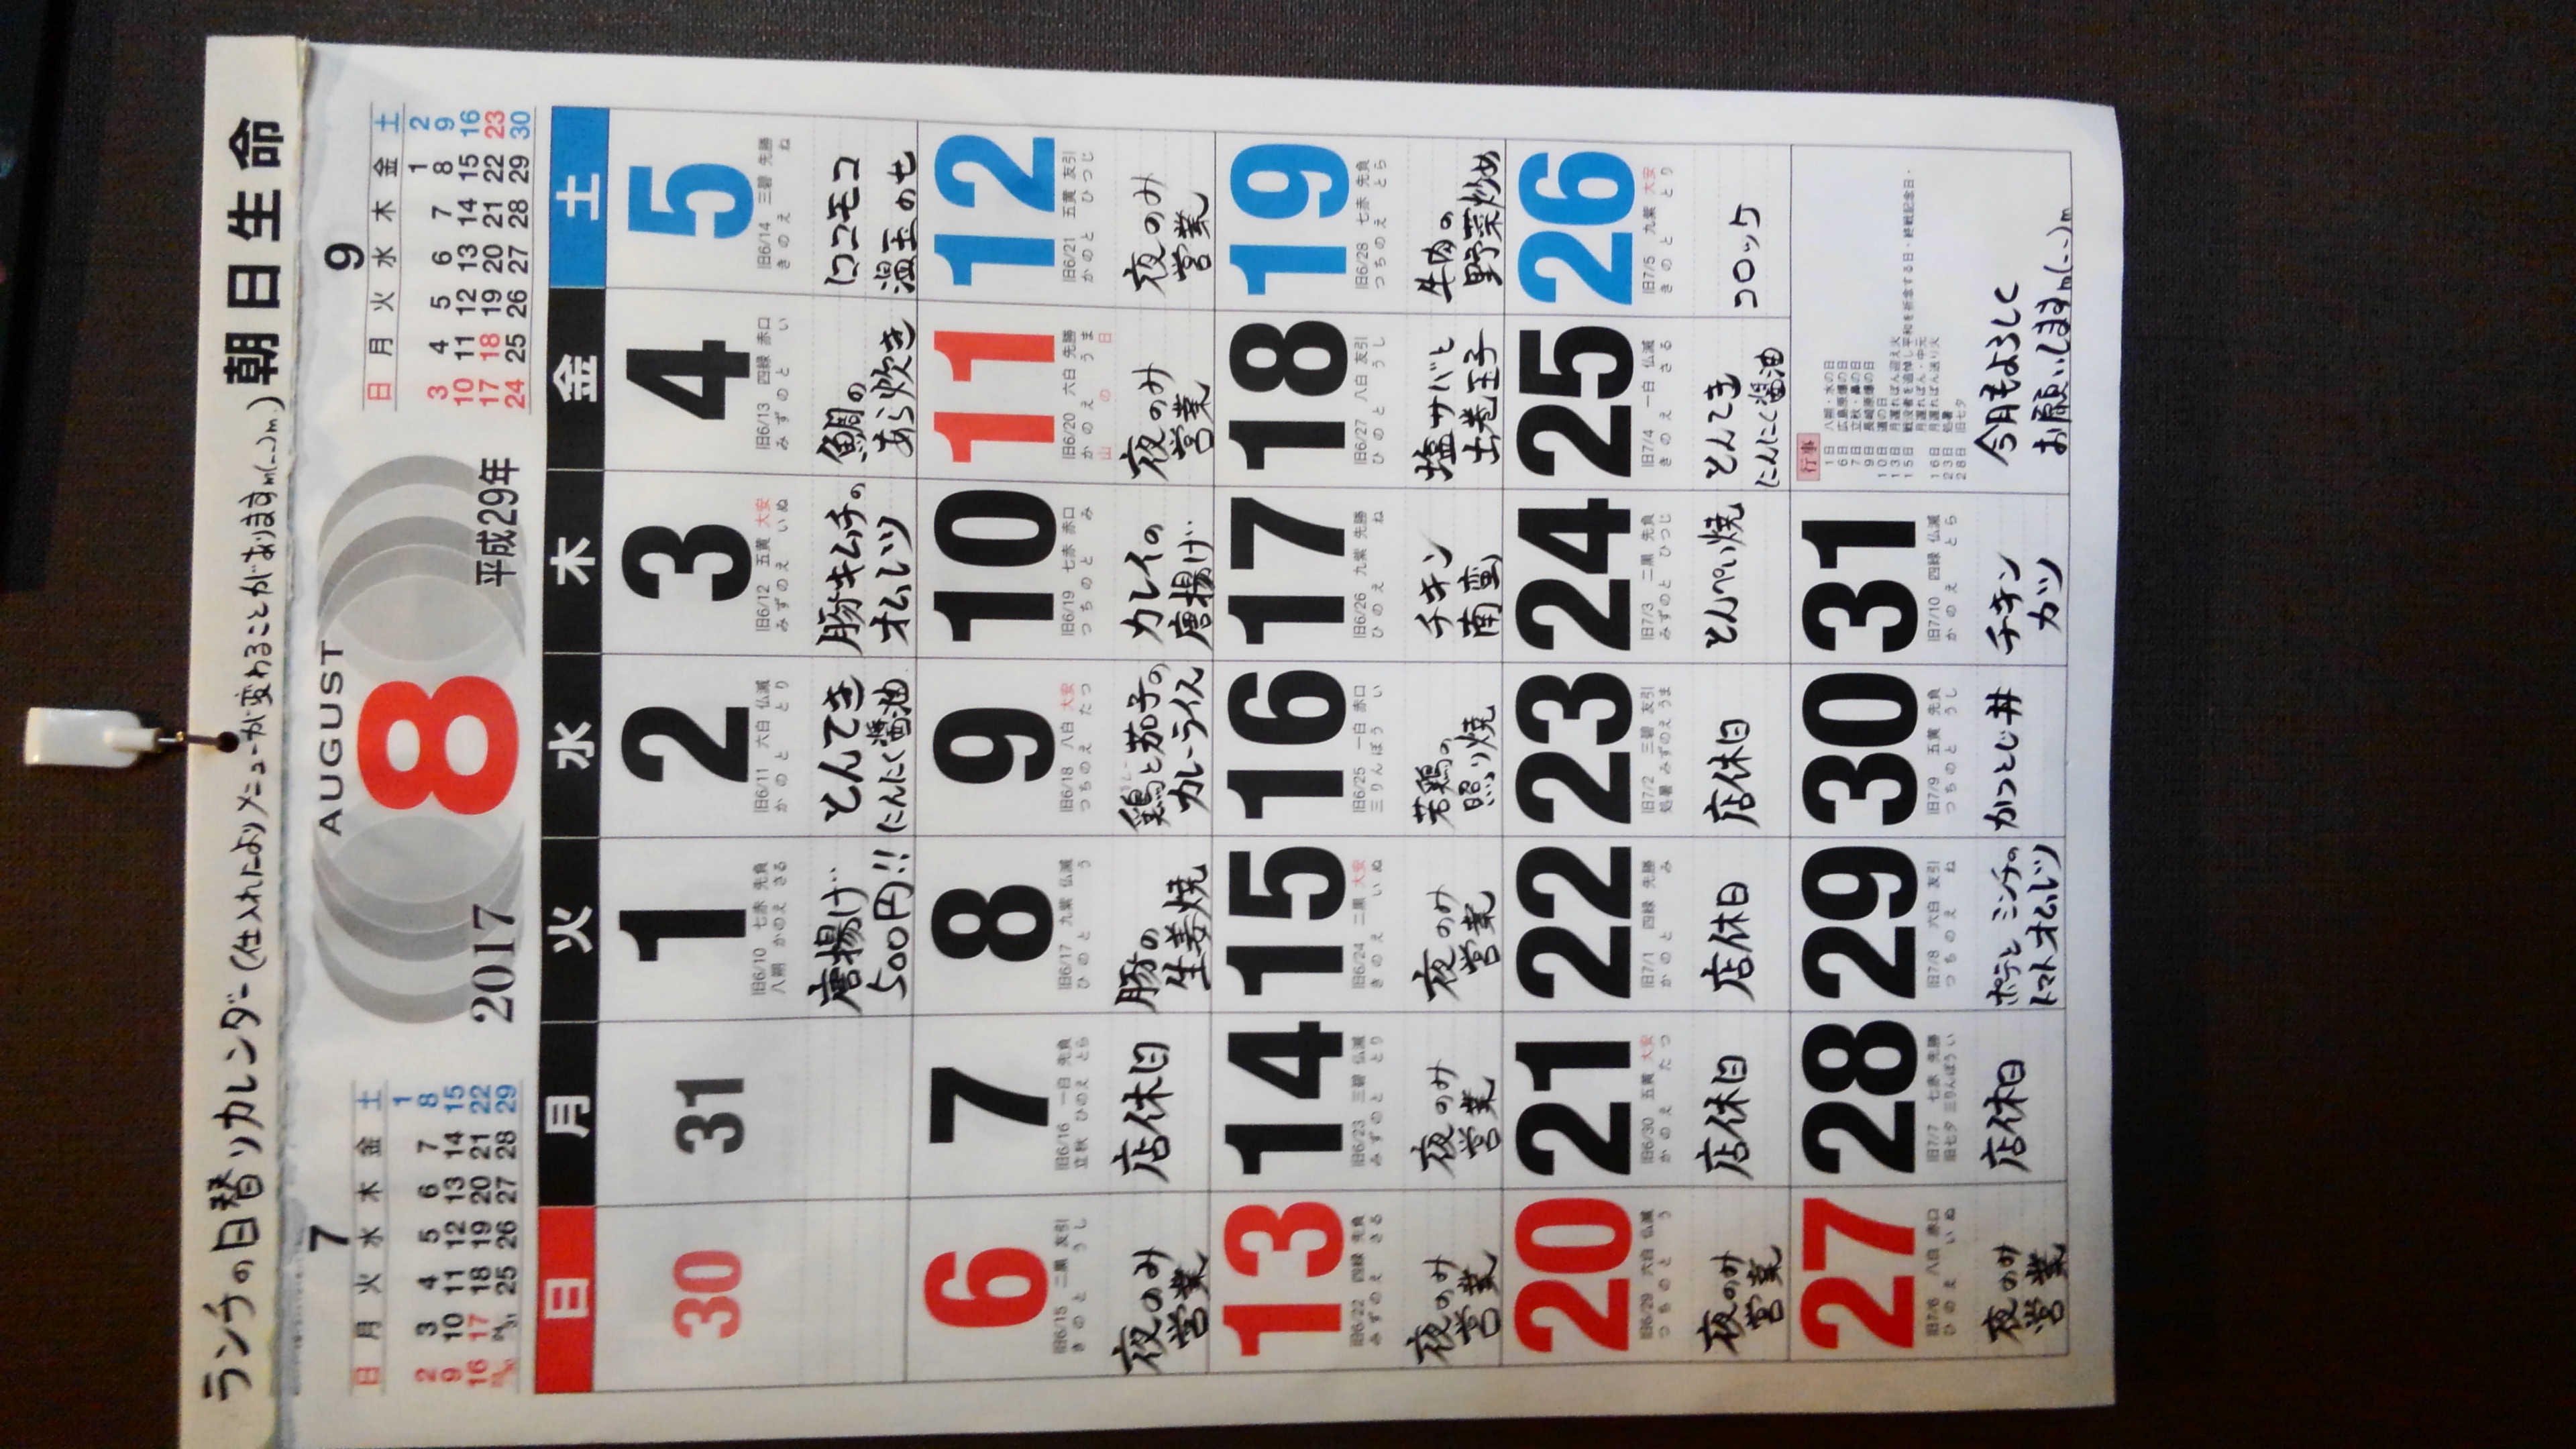 ランチの日替りカレンダー(仕入れによりメニューが変わることがあります m(_ _)m) 朝日生命
7
日 月 火 水 木 金 土
1
2 3 4 5 6 7 8
9 10 11 12 13 14 15
16 17 18 19 20 21 22
23/30 24/31 25 26 27 28 29
AUGUST
8
2017
平成29年
9
日 月 火 水 木 金 土
1 2
3 4 5 6 7 8 9
10 11 12 13 14 15 16
17 18 19 20 21 22 23
24 25 26 27 28 29 30
日 月 火 水 木 金 土
30
31
1
旧6/10 七赤 先負
八朔 かのえ さる
唐揚げ
500円!!
2
旧6/11 六白 仏滅
かのと とり
とんてき
にんにく醤油
3
旧6/12 五黄 大安
みずのえ いぬ
豚キムチの
オムレツ
4
旧6/13 四緑 赤口
みずのと い
鯛の
あら炊き
5
旧6/14 三碧 先勝
きのえ ね
ロコモコ
温玉のせ
6
旧6/15 二黒 友引
きのと うし
夜のみ
営業
7
旧6/16 一白 先負
立秋 ひのえ とら
店休日
8
旧6/17 九紫 仏滅
ひのと う
豚の
生姜焼
9
旧6/18 八白 大安
つちのえ たつ
鶏と茄子の
カレーライス
10
旧6/19 七赤 赤口
つちのと み
カレイの
唐揚げ
11
旧6/20 六白 先勝
かのえ うま
山の日
夜のみ
営業
12
旧6/21 五黄 友引
かのと ひつじ
夜のみ
営業
13
旧6/22 四緑 先負
みずのえ さる
夜のみ
営業
14
旧6/23 三碧 仏滅
みずのと とり
夜のみ
営業
15
旧6/24 二黒 大安
きのえ いぬ
夜のみ
営業
16
旧6/25 一白 赤口
三りんぼう い
若鶏の
照り焼
17
旧6/26 九紫 先勝
ひのえ ね
チキン
南蛮
18
旧6/27 八白 友引
ひのと うし
塩サバと
出巻玉子
19
旧6/28 七赤 先負
つちのえ とら
牛肉の
野菜炒め
20
旧6/29 六白 仏滅
つちのと う
夜のみ
営業
21
旧6/30 五黄 大安
かのえ たつ
店休日
22
旧7/1 四緑 先勝
かのと み
店休日
23
旧7/2 三碧 友引
処暑 みずのえ うま
店休日
24
旧7/3 二黒 先負
みずのと ひつじ
とんぺい焼
25
旧7/4 一白 仏滅
きのえ さる
とんてき
にんにく醤油
26
旧7/5 九紫 大安
きのと とり
コロッケ
27
旧7/6 八白 赤口
ひのえ いぬ
夜のみ
営業
28
旧7/7 七赤 先勝
旧七夕 三りんぼう い
店休日
29
旧7/8 六白 友引
つちのえ ね
ポテとミンチの
トマトオムレツ
30
旧7/9 五黄 先負
つちのと うし
かつとじ丼
31
旧7/10 四緑 仏滅
かのえ とら
チキン
カツ
行事
1日 八朔・水の日
6日 広島原爆の日
7日 立秋・鼻の日
9日 長崎原爆の日
10日 道の日
13日 月遅れぼん迎え火
15日 戦没者を追悼し平和を祈念する日・終戦記念日・
月遅れぼん・中元
16日 月遅れぼん送り火
23日 処暑
28日 旧七夕
今月もよろしく
お願いします m(_ _)m